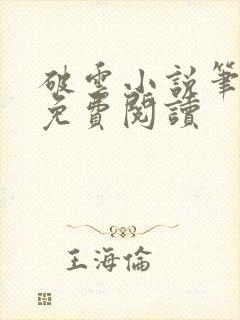 破雲小說筆
免費閱讀
王海倫